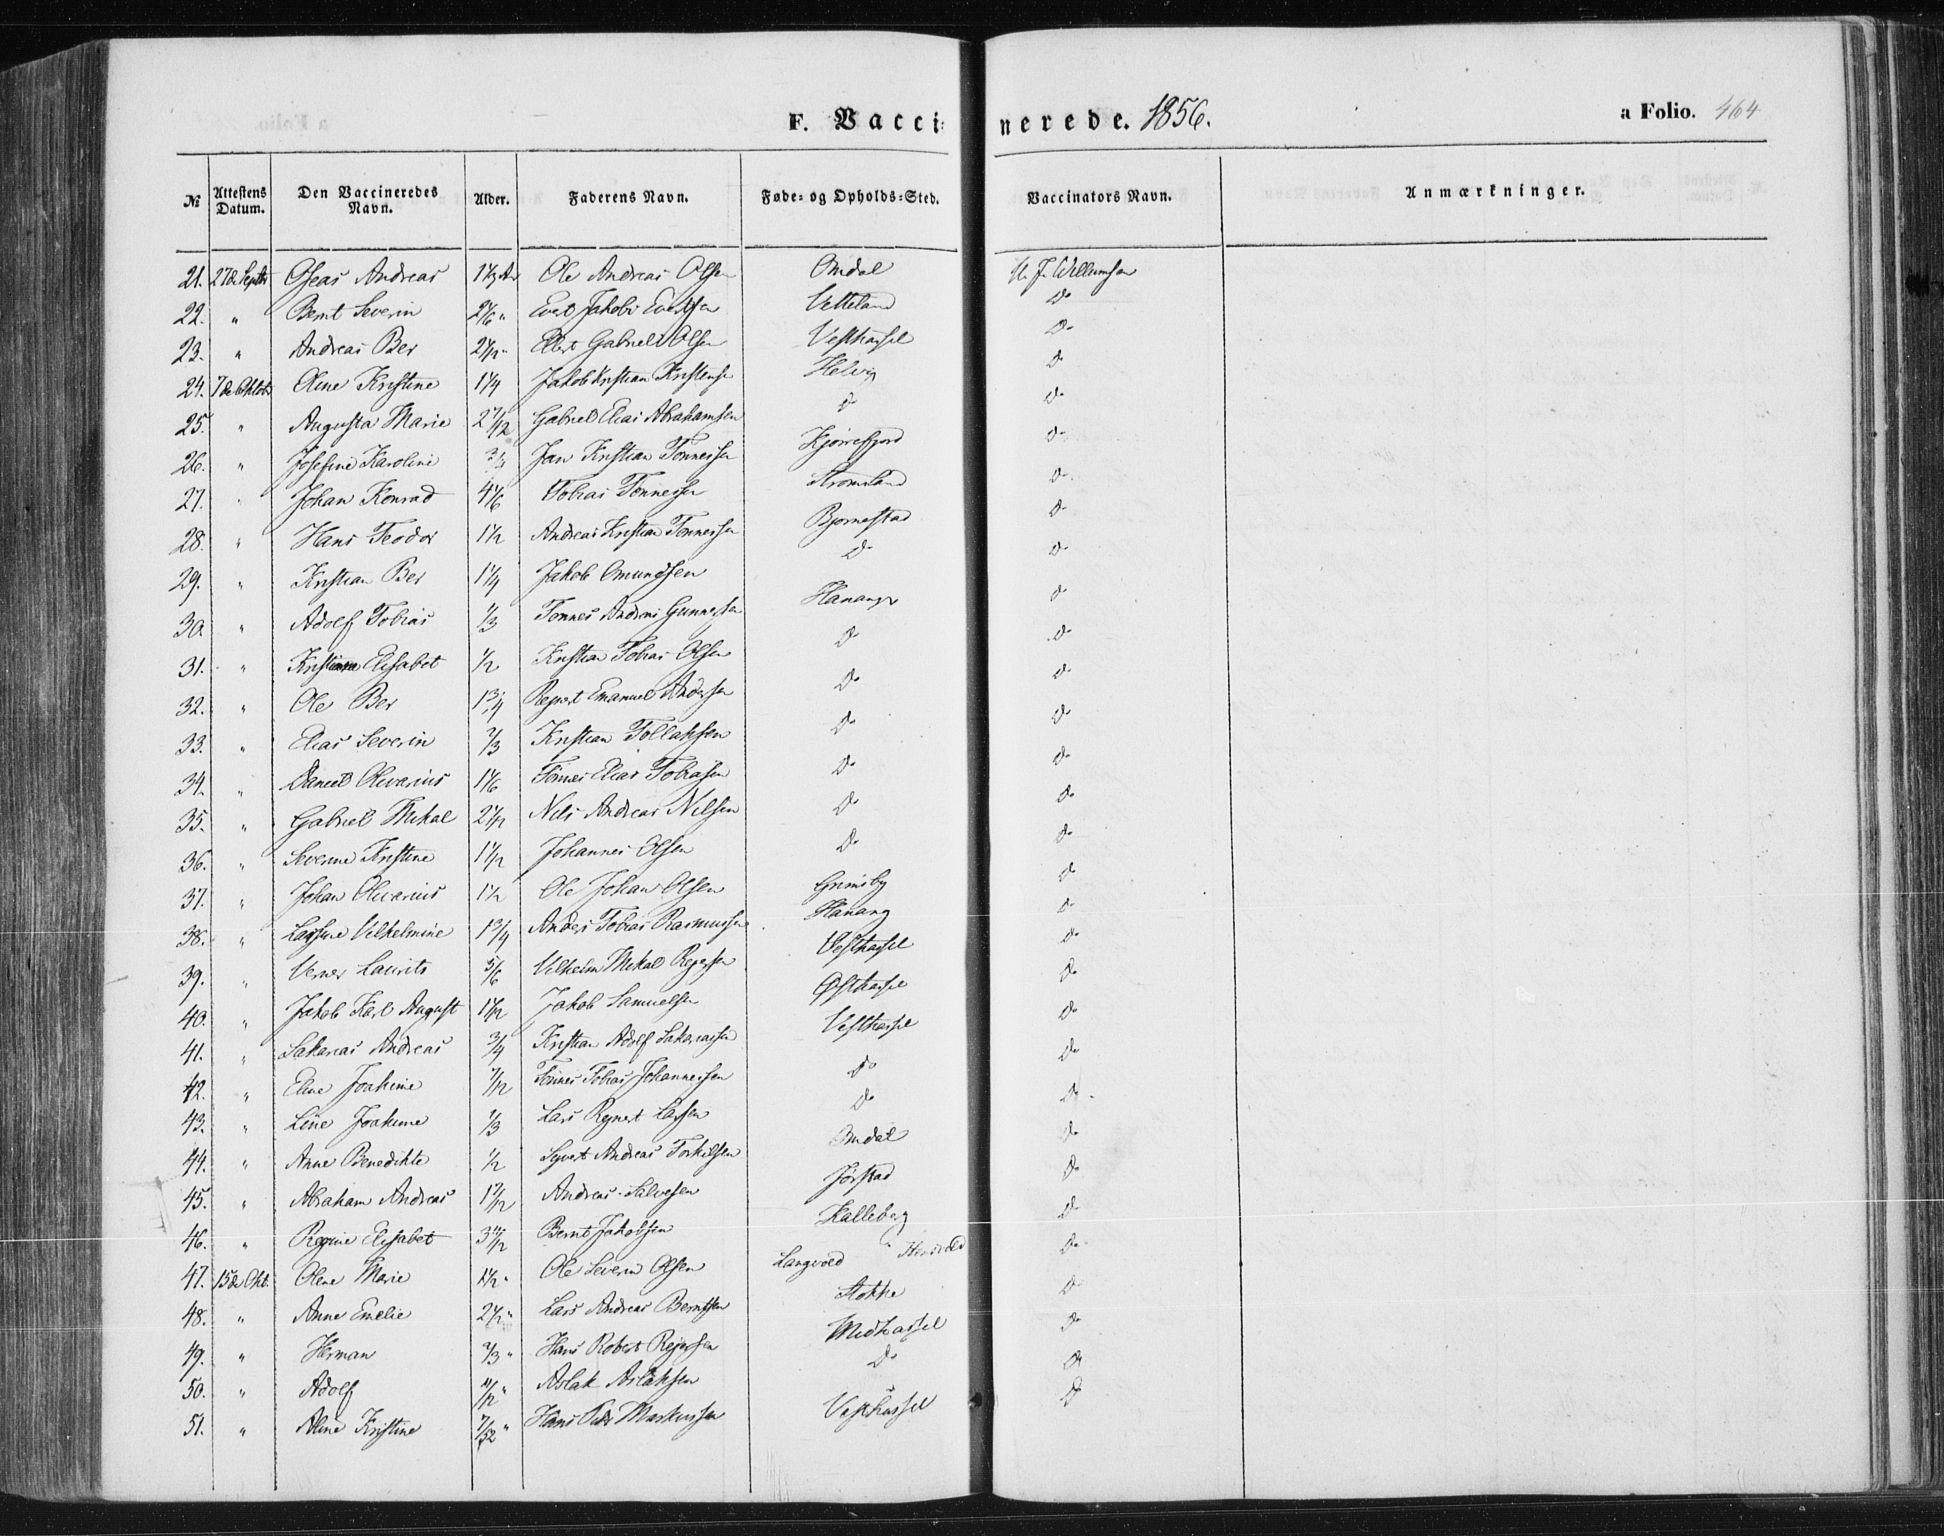 F. Vaccinerede. 1856. a Folio. 464
№ Attestens Datum. Den Vaccineredes Navn. Alder. Faderens Navn. Føde- og Opholds-Sted. Vaccinators Navn. Anmærkninger.
21. 27de Septbr Oseas Andreas 1 1/3 Ar Ole Andreas Olsen Omdal Willumsen
22. " Bernt Severin 2 1/6 " Evert Jakob Evertsen Vetteland Do
23. " Andreas Ber 2 1/2 " Elert Gabriel Olsen Vesthassel Do
24. 7de Oktob. Oline Kristine 1 1/4 Jakob Kristian Kristensen Helvig Do
25. " Augusta Marie 2 7/12 Gabriel Elias Abrahamsen Do Do
26. " Josefine Karoline 3/4 Jan Kristian Tønnessen Kjørrefjord Do
27. " Johan Konrad 4 1/6 Tobias Tønnessen Stromsland Do
28. " Hans Teodor 1 1/2 Andreas Kristian Tønnessen Bjørnestad Do
29. " Kristian Ber 1 1/4 Jakob Omundsen Do Do
30. " Adolf Tobias 1/3 Tønnes Andreas Gunnersen Hananger Do
31. " Elisabet 1/2 Kristian Tobias Olsen Do Do
32. " Ole Ber 1 3/4 Reinert Emanuel Andersen Do Do
33. " Elias Severin 2/3 Kristian Tollaksen Do Do
34. " Daniel Olivarius 1 1/6 Tønnes Elias Tobiasen Do Do
35. " Gabriel Mikal 2 1/2 Nils Andreas Nilsen Do Do
36. " Severine Kristine 1 1/2 Johannes Olsen Do Do
37. " Johan Olivarius 1 1/2 Ole Johan Olsen Grimsby Do
38. " Vilhelmine 1 3/4 Anders Tobias Rasmussen Hanang Do
39. " Verner Laurits 5/6 Vilhelm Mikal Rejersen Vesthassel Do
40. " Jakob Karl August 1 1/12 Jakob Samuelsen Østhassel Do
41. " Sakarias Andreas 3/4 Kristian Adolf Sakariassen Vesthassel Do
42. " Eline Joakime 7/12 Tønnes Tobias Johannessen Do Do
43. " Line Joakime 1/3 Lars Reinert Larsen Do Do
44. " Anne Benedikte 1/2 Syvert Andreas Torkilsen Omdal Do
45. " Abraham Andreas 1 7/12 Andreas Salvesen Jørstad Do
46. " Regine Elisabet 3 1/2 Bernt Jakobsen Kalleberg Do
47. 15de Okt. Olene Marie 1 1/2 " Ole Severin Olsen Langvold Do
48. " Anne Emelie 2 1/2 " Lars Andreas Berntsen Stokke Do
49. " Herman 2/3 " Hans Robert Rejersen Midhassel Do
50. " Adolf 11/12 " Aslak Aslaksen Do Do
51. " Aline Kristine 7/52 " Hans Markussen Vesthassel Do